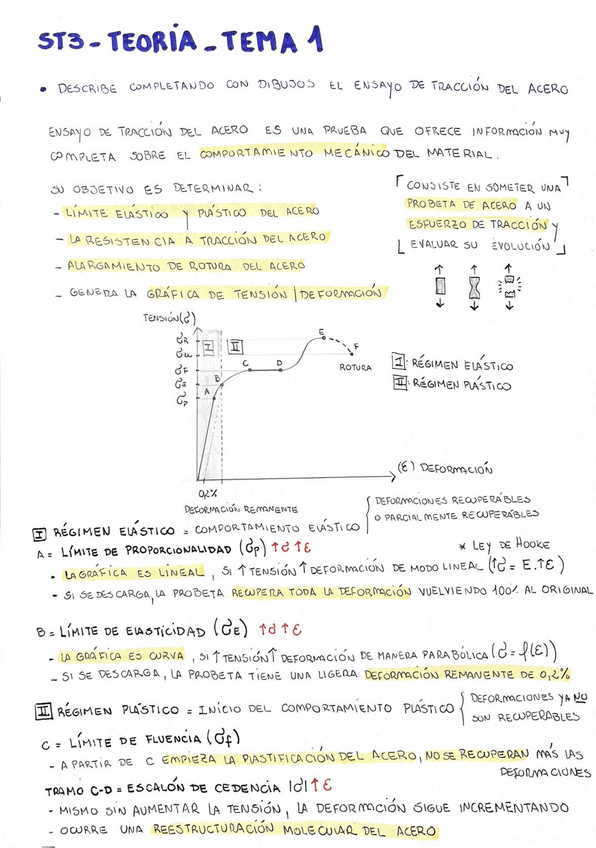 ST3 - TEORÍA _ TEMA 1
• DESCRIBE COMPLETANDO CON DIBUJOS EL ENSAYO DE TRACCIÓN DEL ACERO
ENSAYO DE TRACCIÓN DEL ACERO ES UNA PRUEBA QUE OFRECE INFORMACIÓN MUY
COMPLETA SOBRE EL COMPORTAMIENTO MECÁNICO DEL MATERIAL.
SU OBJETIVO ES DETERMINAR:
- LÍMITE ELÁSTICO Y PLÁSTICO DEL ACERO
- LA RESISTENCIA A TRACCIÓN DEL ACERO
- ALARGAMIENTO DE ROTURA DEL ACERO
- GENERA LA GRÁFICA DE TENSIÓN | DEFORMACIÓN
CONSISTE EN SOMETER UNA
PROBETA DE ACERO A UN
ESFUERZO DE TRACCIÓN Y
EVALUAR SU EVOLUCIÓN
TENSIÓN (σ)
σR
σu
σF
σE
σP
I II
A B C D E F
ROTURA
I: RÉGIMEN ELÁSTICO
II: RÉGIMEN PLÁSTICO
(ε) DEFORMACIÓN
0,2%
DEFORMACIÓN REMANENTE
I RÉGIMEN ELÁSTICO = COMPORTAMIENTO ELÁSTICO { DEFORMACIONES RECUPERABLES
O PARCIALMENTE RECUPERABLES
A = LÍMITE DE PROPORCIONALIDAD (σp) ↑σ ↑ε * LEY DE HOOKE
- LA GRÁFICA ES LÍNEAL, SI ↑ TENSIÓN ↑ DEFORMACIÓN DE MODO LINEAL (↑σ = E.↑ε)
- SI SE DESCARGA, LA PROBETA RECUPERA TODA LA DEFORMACIÓN VUELVIENDO 100% AL ORIGINAL
B = LÍMITE DE ELASTICIDAD (σE) ↑σ ↑ε
- LA GRÁFICA ES CURVA, SI ↑ TENSIÓN ↑ DEFORMACIÓN DE MANERA PARABÓLICA (σ = f(ε))
- SI SE DESCARGA, LA PROBETA TIENE UNA LIGERA DEFORMACIÓN REMANENTE DE 0,2%
II RÉGIMEN PLÁSTICO = INÍCIO DEL COMPORTAMIENTO PLÁSTICO { DEFORMACIONES YA NO
SON RECUPERABLES
C = LÍMITE DE FLUENCIA (σf)
- A PARTIR DE C EMPIEZA LA PLASTIFICACIÓN DEL ACERO, NO SE RECUPERAN MÁS LAS
DEFORMACIONES
TRAMO C-D = ESCALÓN DE CEDENCIA |σ| ↑ε
- MISMO SIN AUMENTAR LA TENSIÓN, LA DEFORMCIÓN SIGUE INCREMENTANDO
- OCURRE UNA REESTRUCTURACIÓN MOLECULAR DEL ACERO